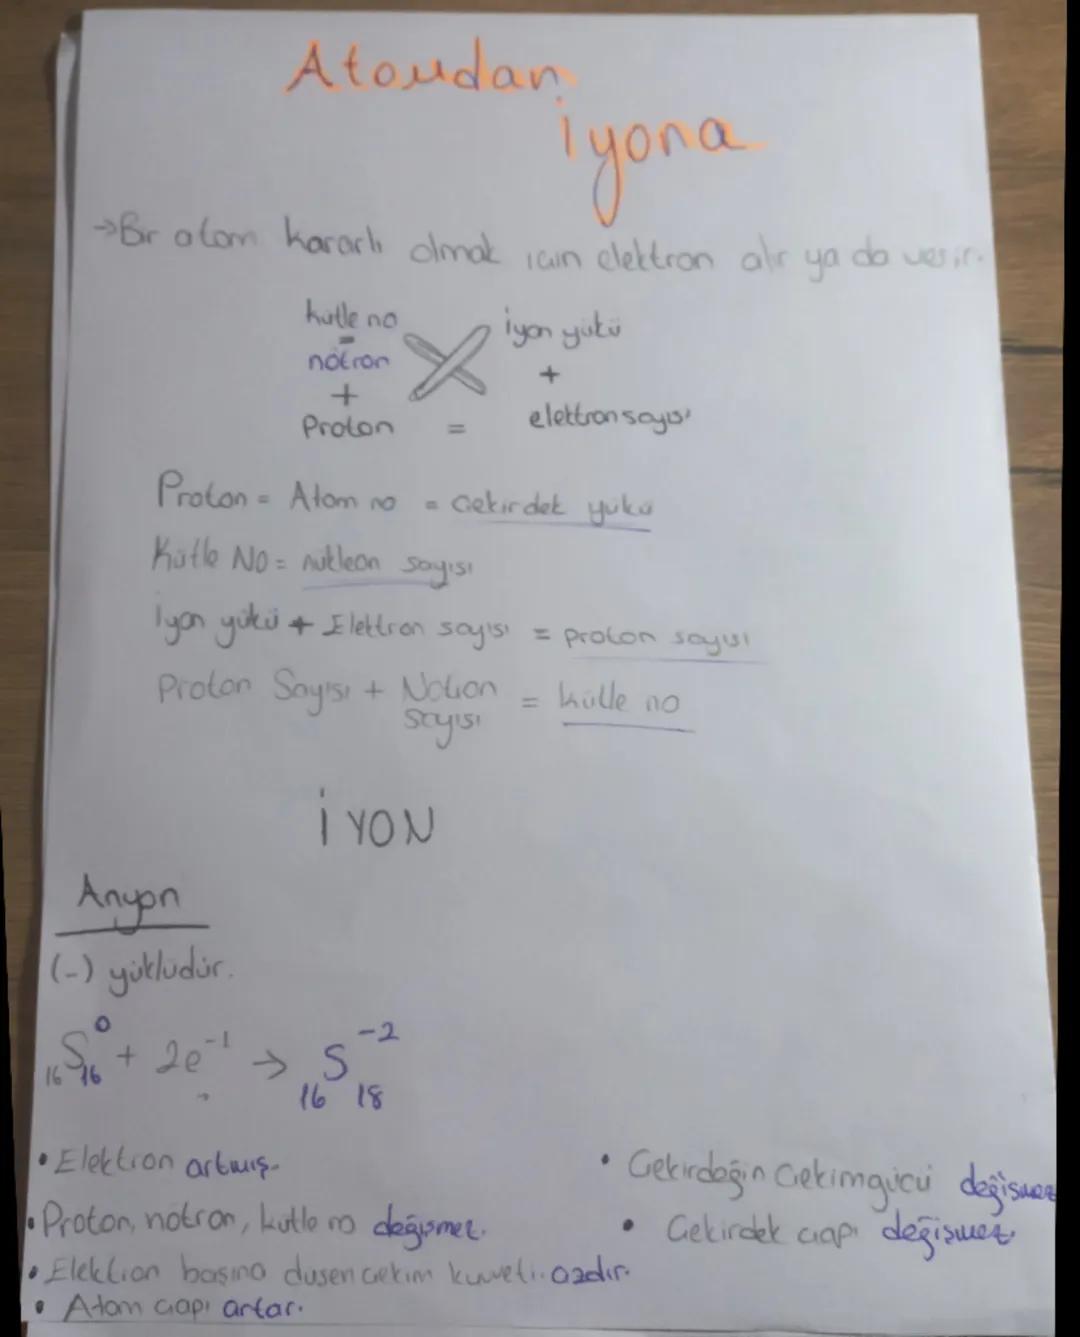 Atomdan
iyona
→Bir atom kararlı olmak için elektron alır ya da verir.
kütle no
iyon yükü
=
nötron
+
+
Proton
=
elektron sayısı
Proton = Atom no = Çekirdek yükü
Kütle No = nükleon sayısı
İyon yükü + Elektron sayısı = proton sayısı
Proton Sayısı + Nötron = kütle no
sayısı
İYON
Anyon
(-) yüklüdür.
₁₆S₁₆⁰ + 2e⁻¹ → ₁₆S₁₈⁻²
• Elektron artmış.
• Proton, nötron, kütle no değişmez.
• Elektron başına düşen çekim kuvveti azdır.
• Atom çapı artar.
• Çekirdeğin çekim gücü değişmez
• Çekirdek çapı değişmez.